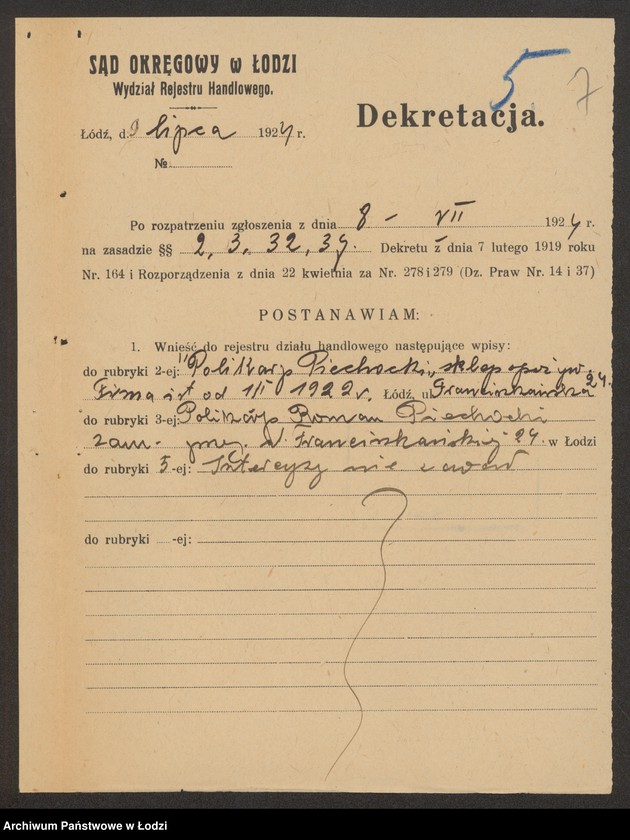 5
7
SĄD OKRĘGOWY w ŁODZI
Wydział Rejestru Handlowego.
Dekretacja.
Łódź, d. 9 lipca 1924 r.
№
Po rozpatrzeniu zgłoszenia z dnia 8 - VII 1924 r.
na zasadzie §§ 2, 3, 32, 39. Dekretu z dnia 7 lutego 1919 roku
Nr. 164 i Rozporządzenia z dnia 22 kwietnia za Nr. 278 i 279 (Dz. Praw Nr. 14 i 37)
POSTANAWIAM:
1. Wnieść do rejestru działu handlowego następujące wpisy:
do rubryki 2-ej: "Polikarp Piechocki, sklep spożyw.
Firma ist od 1/I 1922 r. Łódź, ul. Franciszkańska 24.
do rubryki 3-ej: Polikarp Roman Piechocki
zam. przy ul. Franciszkańskiej 24. w Łodzi
do rubryki 5-ej: Intercyzy nie zawarł
do rubryki -ej:
Archiwum Państwowe w Łodzi